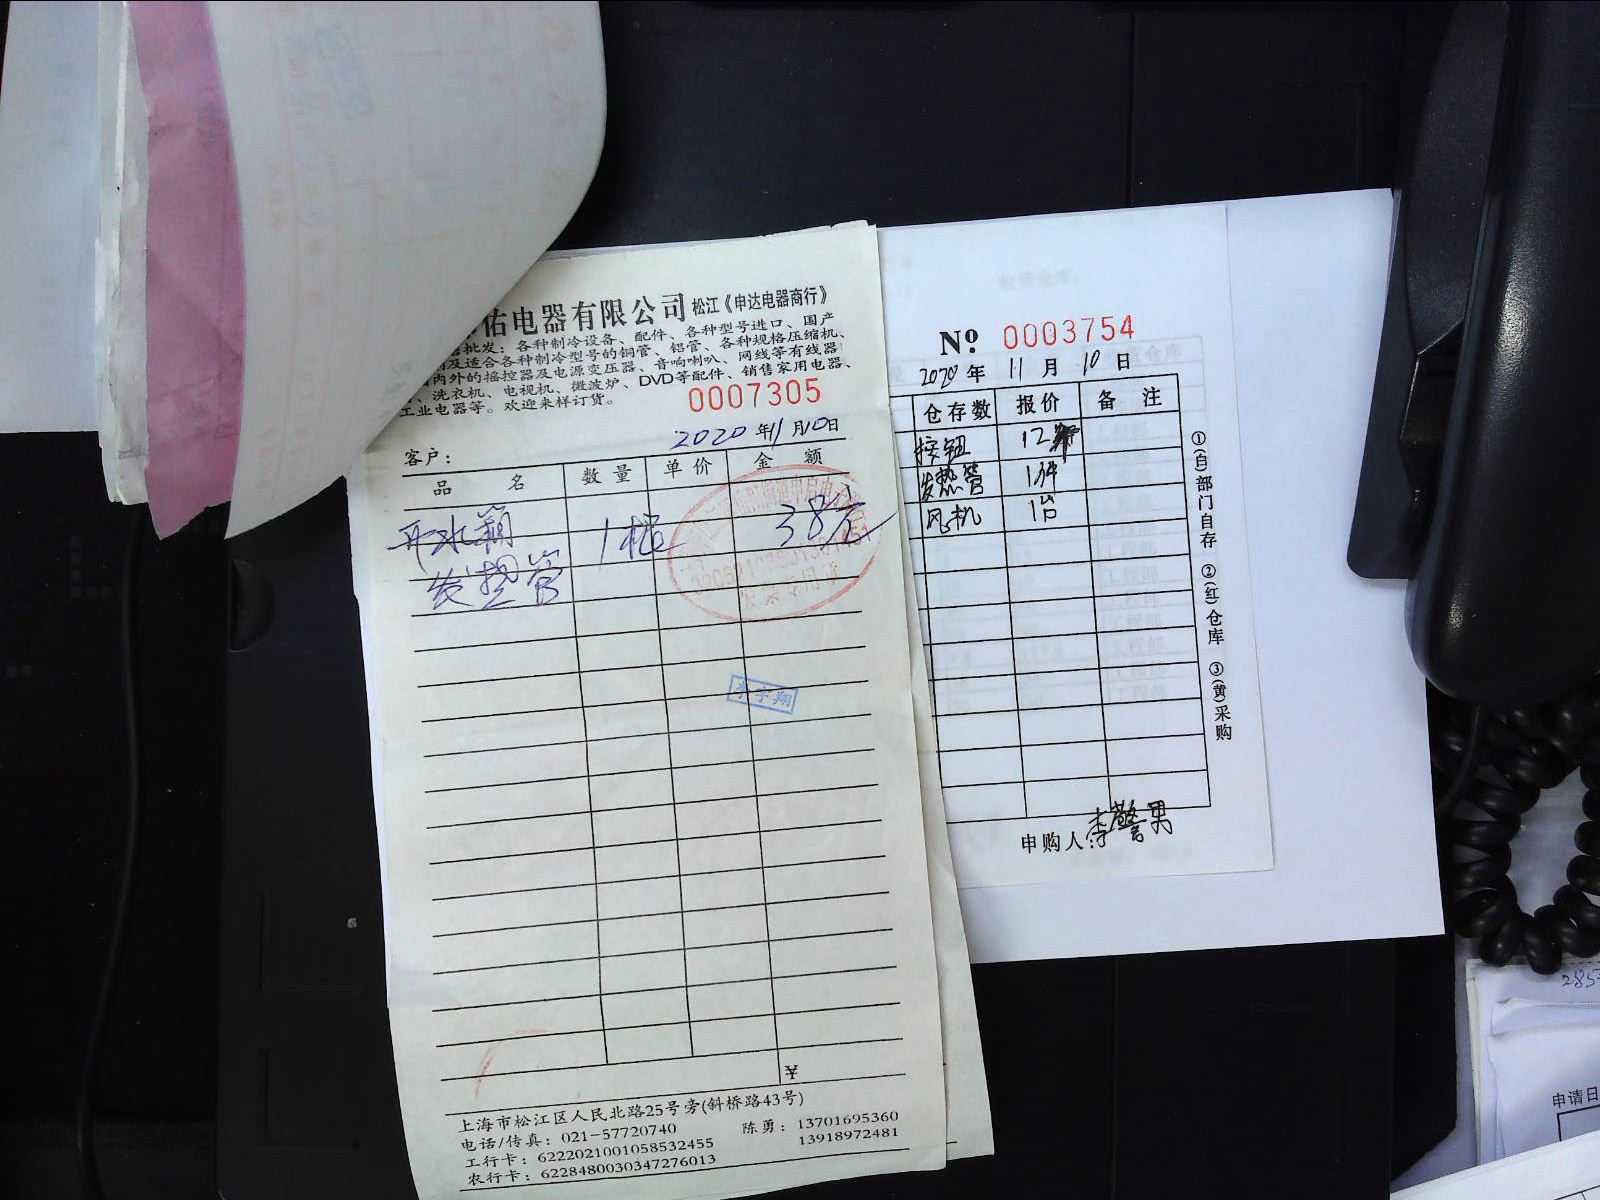 佑电器有限公司 松江《申达电器商行》
批发：各种制冷设备、配件、各种型号进口、国产
及适合各种制冷型号的铜管、铝管、各种规格压缩机、
内外的摇控器及电源变压器、音响喇叭、网线等有线器
、洗衣机、电视机、微波炉、DVD等配件、销售家用电器、
工业电器等。欢迎来样订货。
0007305
2020年11月10日
客户：
品 名 数量 单价 金 额
开水箱 1根 38元
发热管
李宇翔
¥
上海市松江区人民北路25号旁(斜桥路43号)
电话/传真：021-57720740 陈勇：13701695360
13918972481
工行卡：6222021001058532455
农行卡：6228480030347276013
№ 0003754
2020年 11月 10日
仓存数 报价 备 注
按钮 12
发热管 1件
风机 1台
①(白)部门自存 ②(红)仓库 ③(黄)采购
申购人：李警男
申请日